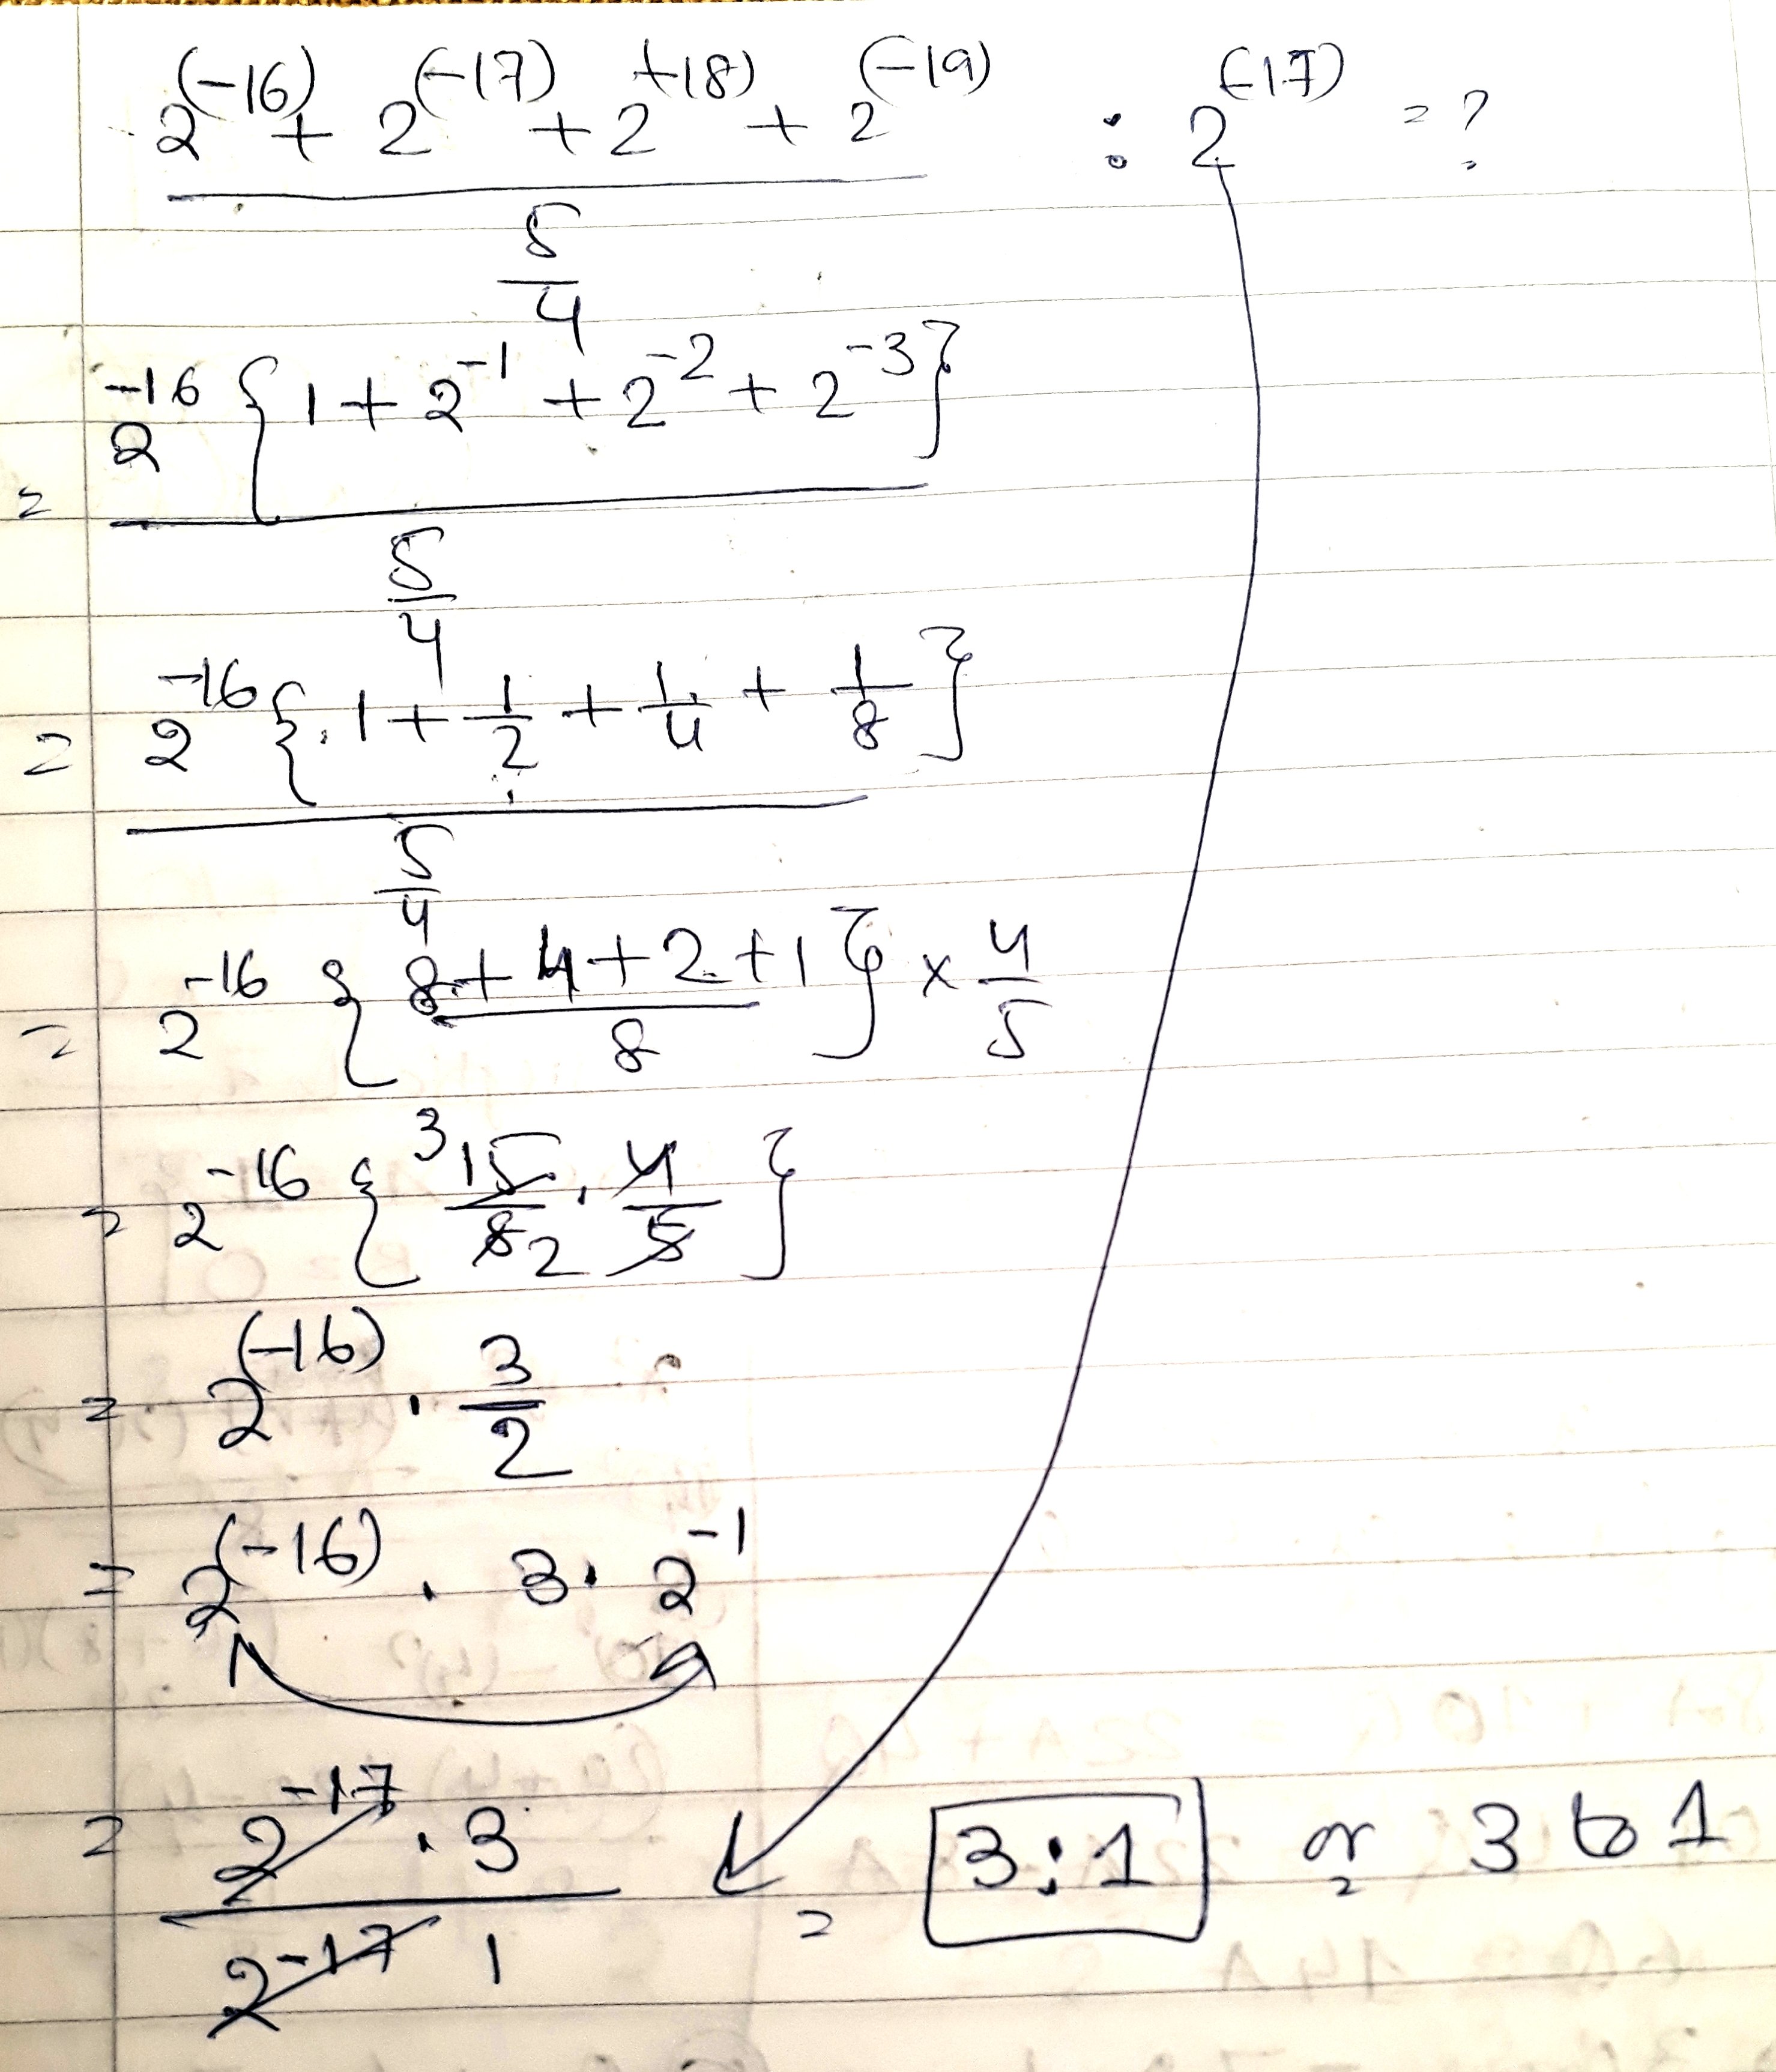 2^(-16) + 2^(-17) + 2^(-18) + 2^(-19) : 2^(-17) = ?
5/4
= 2^-16 {1 + 2^-1 + 2^-2 + 2^-3}
5/4
= 2^-16 {1 + 1/2 + 1/4 + 1/8}
5/4
= 2^-16 {8 + 4 + 2 + 1 / 8} × 4/5
= 2^-16 {3 15/8 2 · 4/5}
= 2^(-16) · 3/2
= 2^(-16) · 3 · 2^-1
= 2^-17 · 3 / 2^-17 1 = 3:1 or 3 to 1